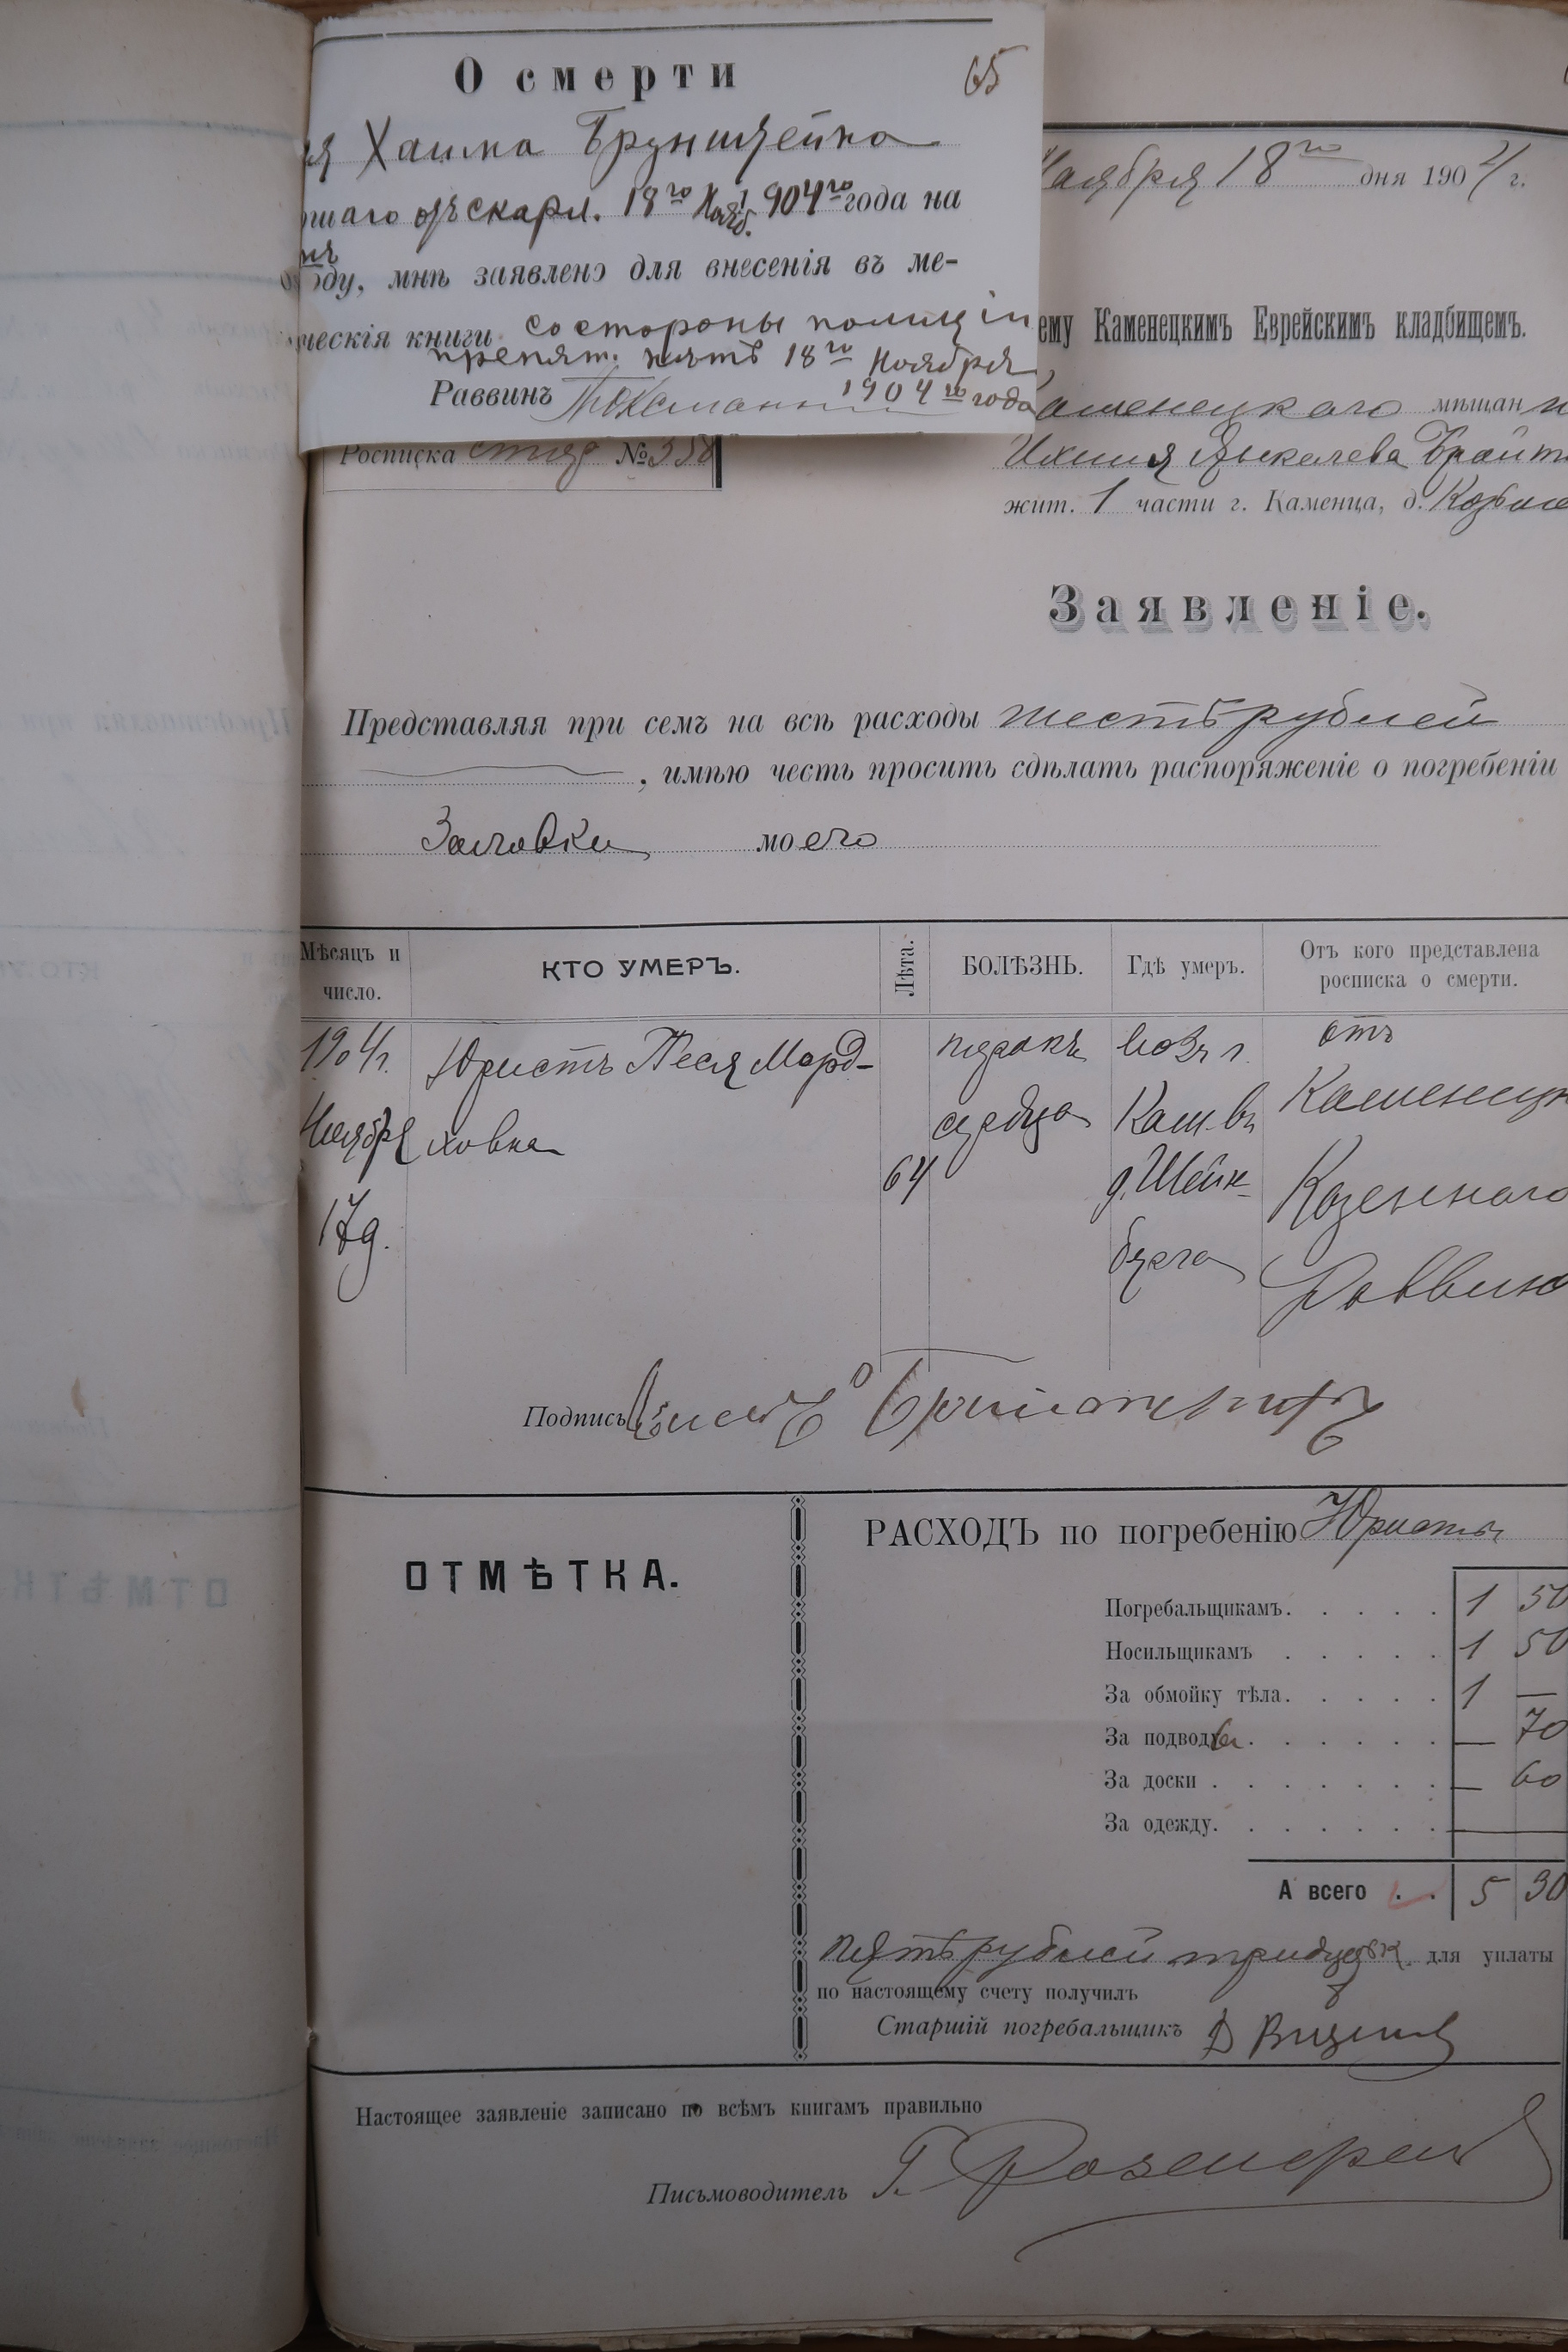 О смерти
65
Хаима Брунштейна
отъ скарл. 18го Нояб. 1904го года на
оду, мнѣ заявлено для внесенія въ ме-
ческія книги со стороны полиціи
препят. нѣтъ 18го Ноября
1904го года
Раввинъ
Ноября 18го дня 1904 г.
ему Каменецкимъ Еврейскимъ кладбищемъ.
Каменецкаго мѣщан
жит. 1 части г. Каменца, д.
Росписка №358
Заявленіе.
Представляя при семъ на всѣ расходы шесть рублей
, имѣю честь просить сдѣлать распоряженіе о погребеніи
Золовки моего
Мѣсяцъ и число. КТО УМЕРЪ. Лѣта. БОЛѢЗНЬ. Гдѣ умеръ. Отъ кого представлена росписка о смерти.
1904г. Юристъ Песя Морд- порокъ отъ
Ноября ховна сердца Кам. въ Каменецк
64 д. Шейн- Казеннаго
17д. берга Раввина
Подпись
ОТМѢТКА.
РАСХОДЪ по погребенію Юристъ
Погребальщикамъ. . . . . 1 50
Носильщикамъ . . . . . 1 50
За обмойку тѣла. . . . . 1 —
За подводы . . . . . . — 70
За доски . . . . . . . — 60
За одежду. . . . . . .
А всего . . 5 30
Пять рублей тридцать к. для уплаты
по настоящему счету получилъ
Старшій погребальщикъ
Настоящее заявленіе записано по всѣмъ книгамъ правильно
Письмоводитель